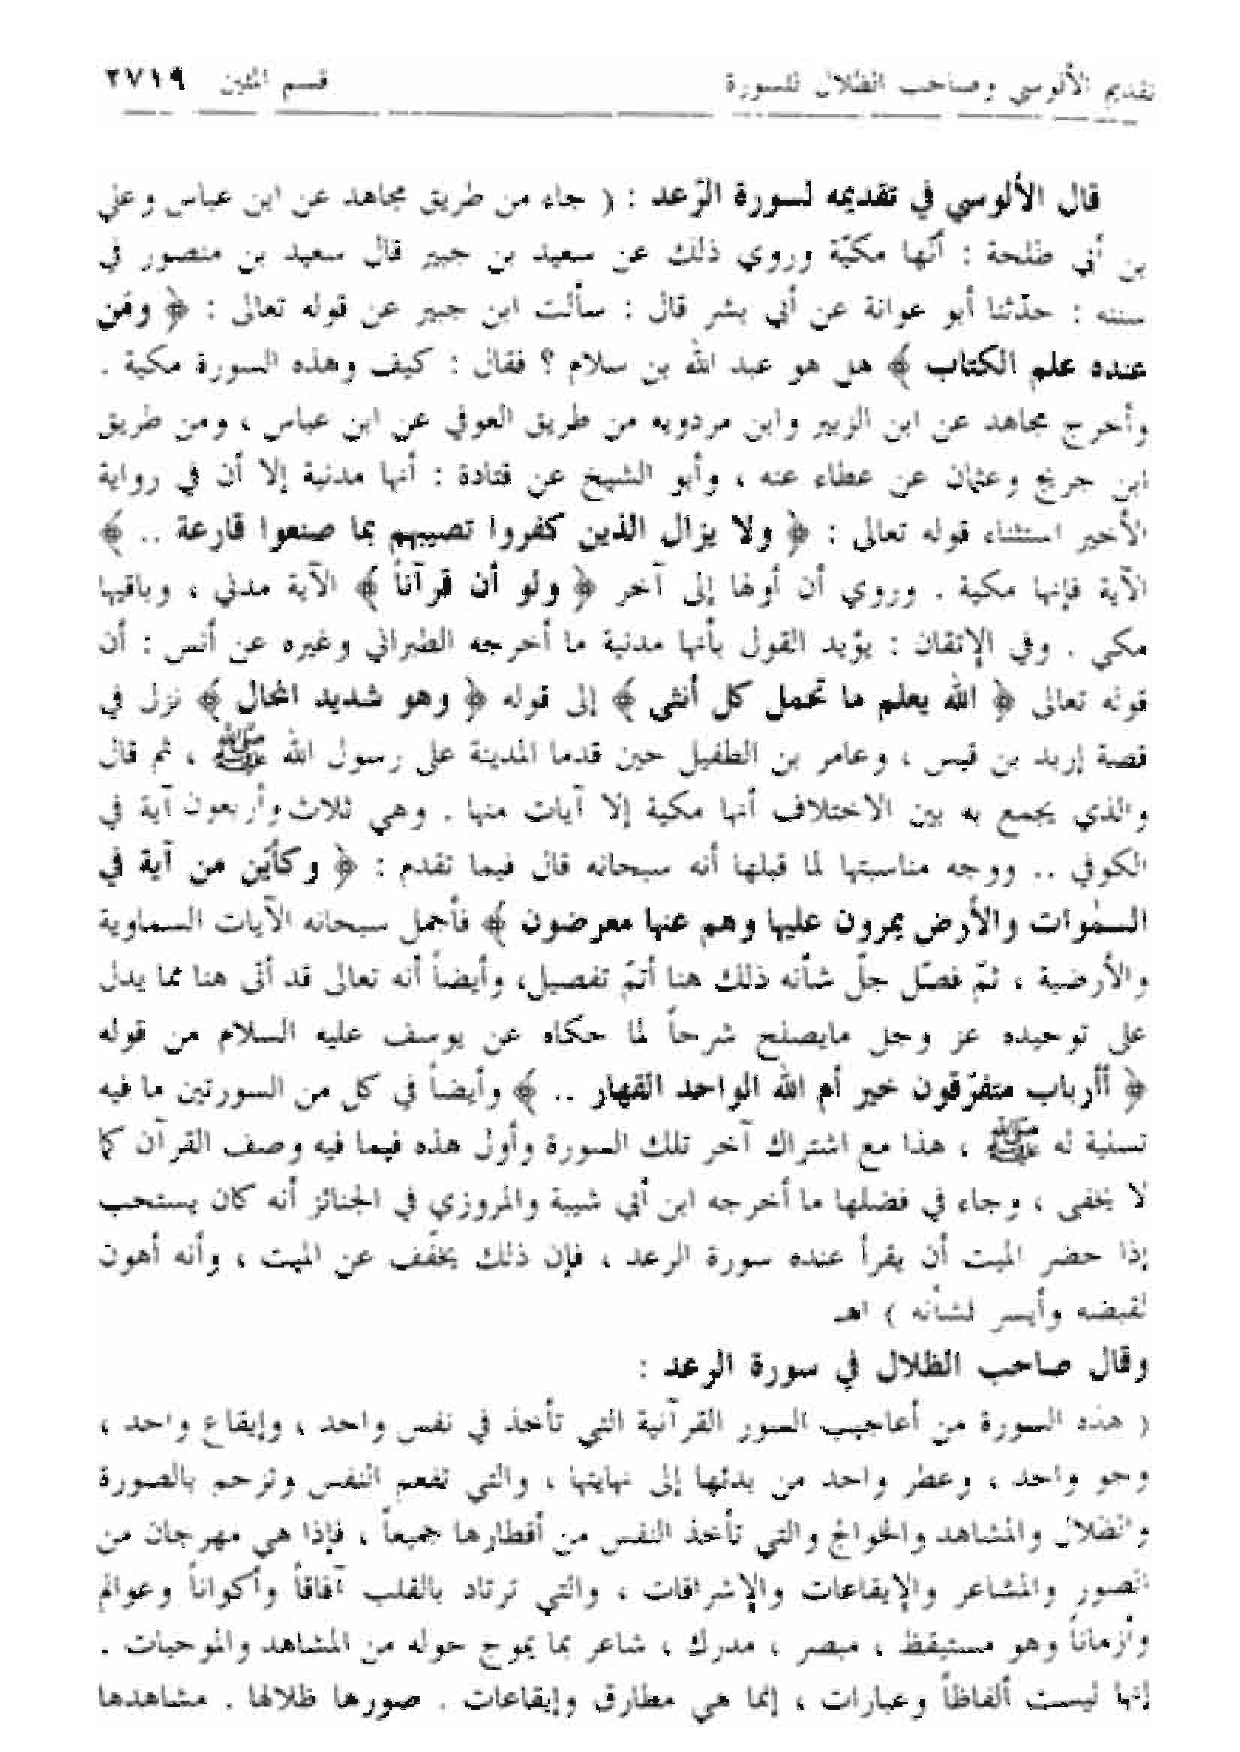 تقديم الألوسي وصاحب الظلال للسورة قسم المئين ٢٧١٩
قال الألوسي في تقديمه لسورة الرّعد : ( جاء من طريق مجاهد عن ابن عباس وعلي
بن أبي طلحة : أنّها مكيّة وروي ذلك عن سعيد بن جبير قال سعيد بن منصور في
سننه : حدّثنا أبو عوانة عن أبي بشر قال : سألت ابن جبير عن قوله تعالى : ﴿ ومَن
عنده علم الكتاب ﴾ هل هو عبد الله بن سلام ؟ فقال : كيف وهذه السورة مكية .
وأخرج مجاهد عن ابن الزبير وابن مردويه من طريق العوفي عن ابن عباس ، ومن طريق
ابن جريج وعثمان عن عطاء عنه ، وأبو الشيخ عن قتادة : أنها مدنية إلا أن في رواية
الأخير استثناء قوله تعالى : ﴿ ولا يزال الذين كفروا تصيبهم بما صنعوا قارعة .. ﴾
الآية فإنها مكية . وروي أن أولها إلى آخر ﴿ ولو أن قرآناً ﴾ الآية مدني ، وباقيها
مكي . وفي الإتقان : يؤيد القول بأنها مدنية ما أخرجه الطبراني وغيره عن أنس : أن
قوله تعالى ﴿ الله يعلم ما تحمل كل أنثى ﴾ إلى قوله ﴿ وهو شديد المحال ﴾ نزل في
قصة إربد بن قيس ، وعامر بن الطفيل حين قدما المدينة على رسول الله ﷺ ، ثم قال
والذي يجمع به بين الاختلاف أنها مكية إلا آيات منها . وهي ثلاث وأربعون آية في
الكوفي .. ووجه مناسبتها لما قبلها أنه سبحانه قال فيما تقدم : ﴿ وكأيّن من آية في
السمٰوات والأرض يمرون عليها وهم عنها معرضون ﴾ فأجمل سبحانه الآيات السماوية
والأرضية ، ثمّ فصّل جلّ شأنه ذلك هنا أتمّ تفصيل، وأيضاً أنه تعالى قد أتى هنا مما يدل
على توحيده عز وجل مايصلح شرحاً لما حكاه عن يوسف عليه السلام من قوله
﴿ أأرباب متفرّقون خير أم الله الواحد القهار .. ﴾ وأيضاً في كل من السورتين ما فيه
تسلية له ﷺ ، هذا مع اشتراك آخر تلك السورة وأول هذه فيما فيه وصف القرآن كما
لا يخفى ، وجاء في فضلها ما أخرجه ابن أبي شيبة والمروزي في الجنائز أنه كان يستحب
إذا حضر الميت أن يقرأ عنده سورة الرعد ، فإن ذلك يخفّف عن الميت ، وأنه أهون
لقبضه وأيسر لشأنه ) اهـ
وقال صاحب الظلال في سورة الرعد :
( هذه السورة من أعاجيب السور القرآنية التي تأخذ في نفس واحد ، وإيقاع واحد ،
وجو واحد ، وعطر واحد من بدئها إلى نهايتها ، والتي تفعم النفس وتزحم بالصورة
والظلال والمشاهد والخوالج والتي تأخذ النفس من أقطارها جميعاً ، فإذا هي مهرجان من
الصور والمشاعر والإيقاعات والإشراقات ، والتي ترتاد بالقلب آفاقاً وأكواناً وعوالم
وأزماناً وهو مستيقظ ، مبصر ، مدرك ، شاعر بما يموج حوله من المشاهد والموحيات .
إنها ليست ألفاظاً وعبارات ، إنما هي مطارق وإيقاعات . صورها ظلالها . مشاهدها